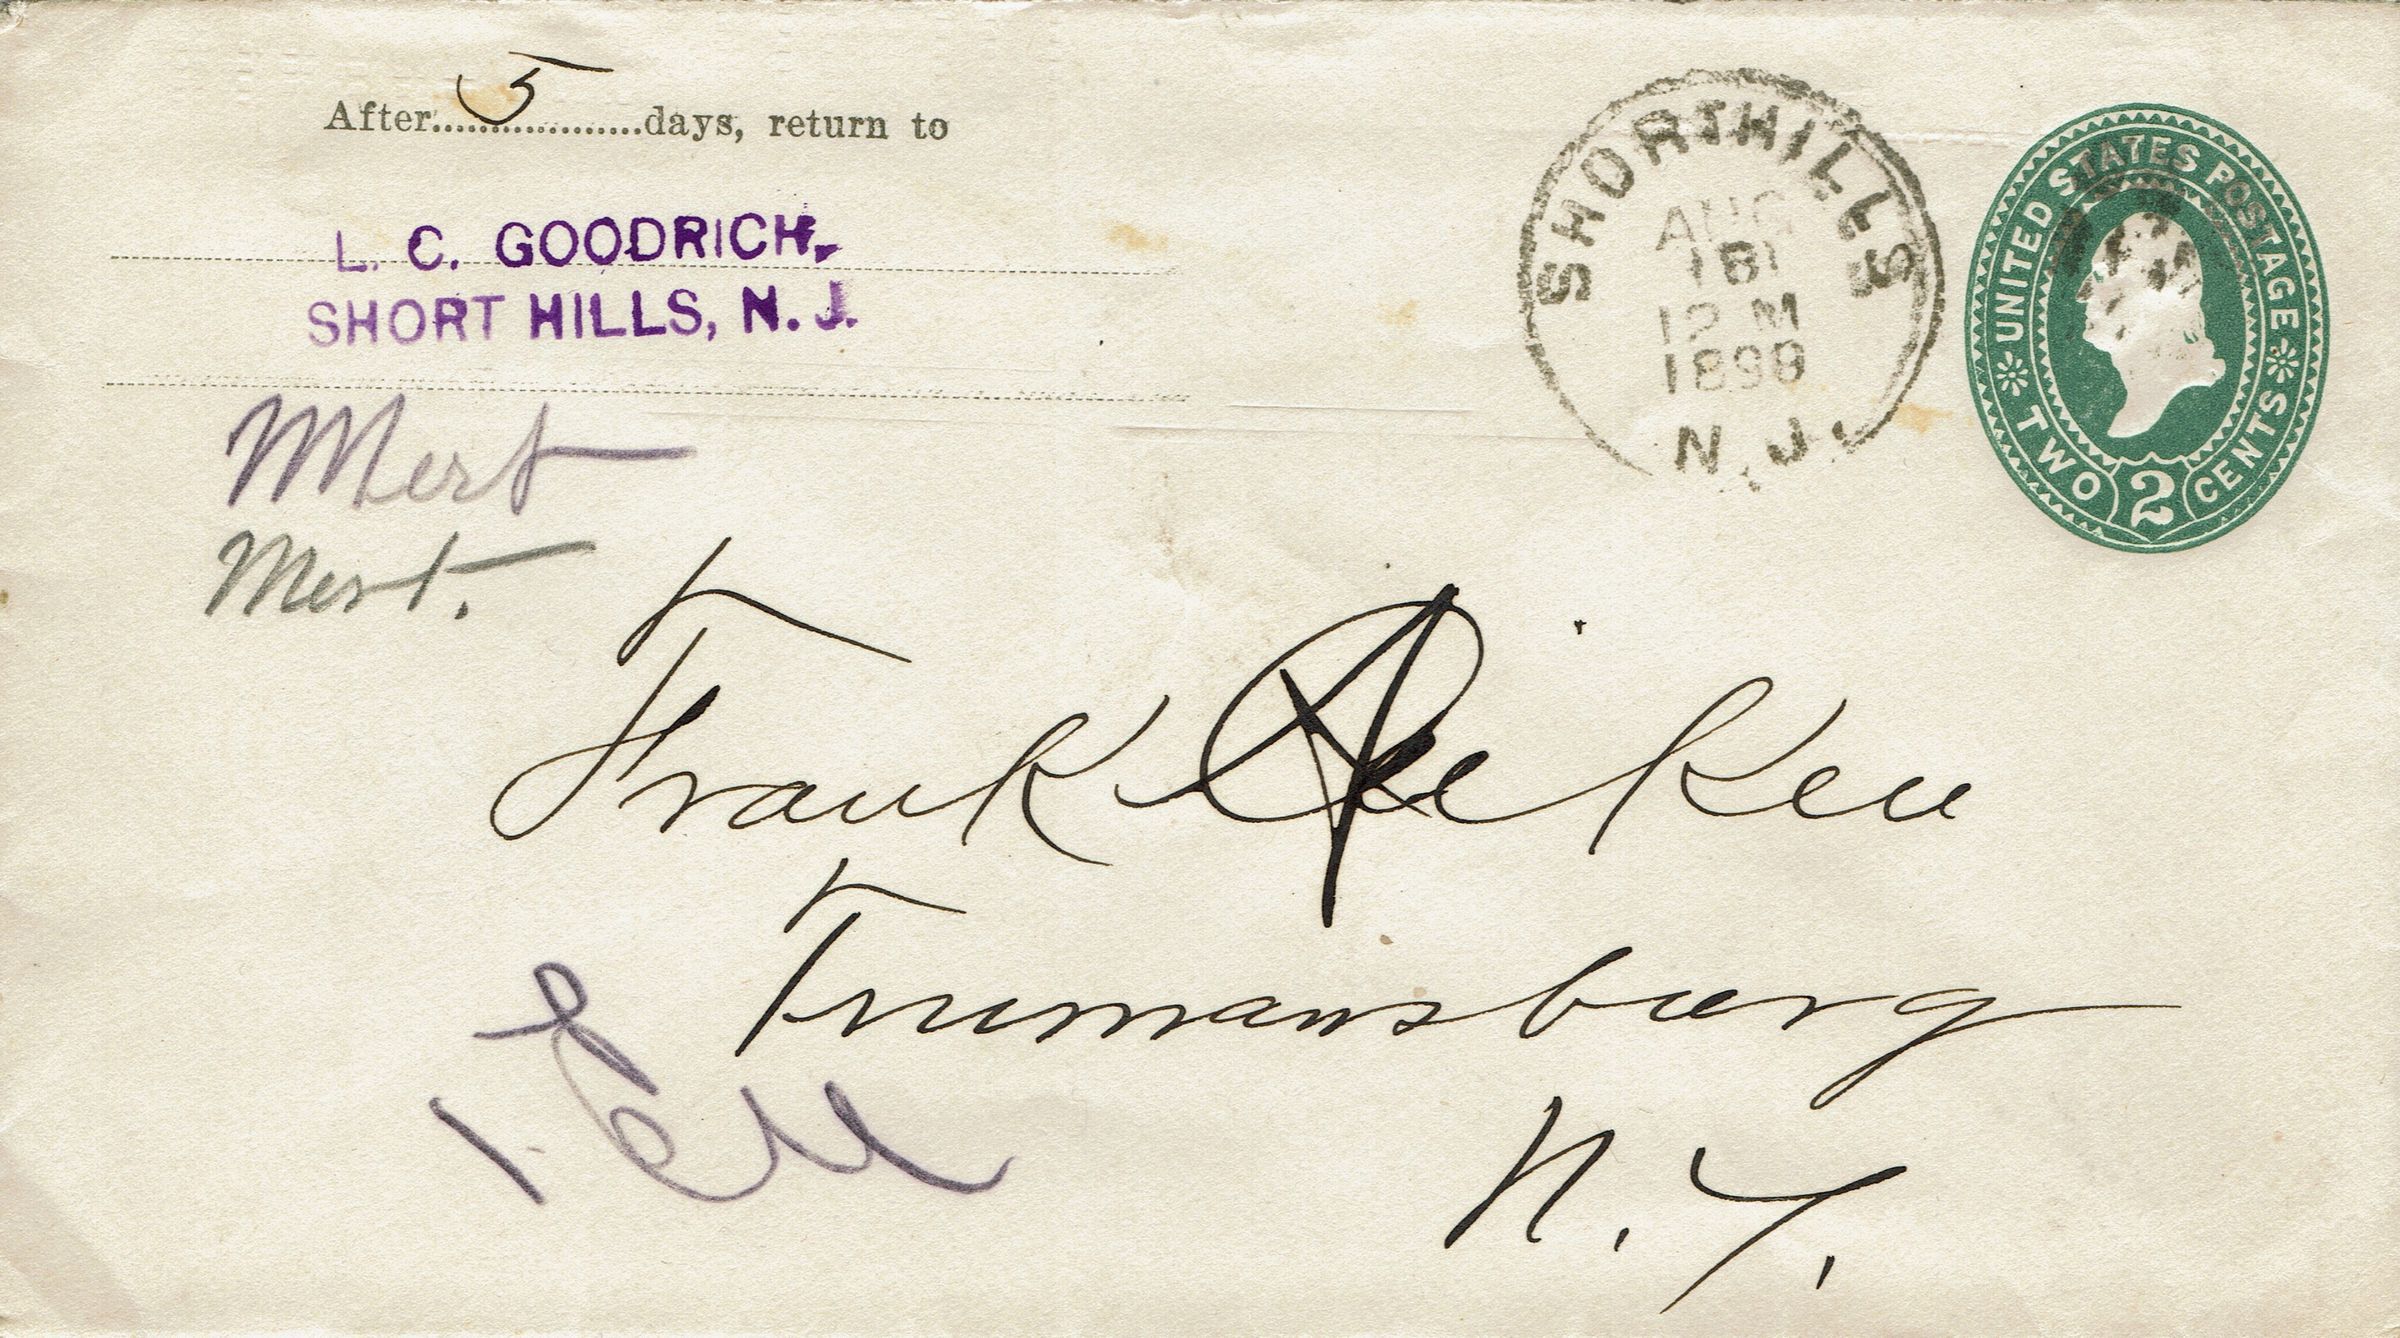 After 5 days, return to
L. C. GOODRICH,
SHORT HILLS, N. J.
SHORT HILLS
AUG
18
12 M
1898
N.J.
UNITED STATES POSTAGE
TWO 2 CENTS
Mert
Mert.
Frank
Trumansburg
N.Y.